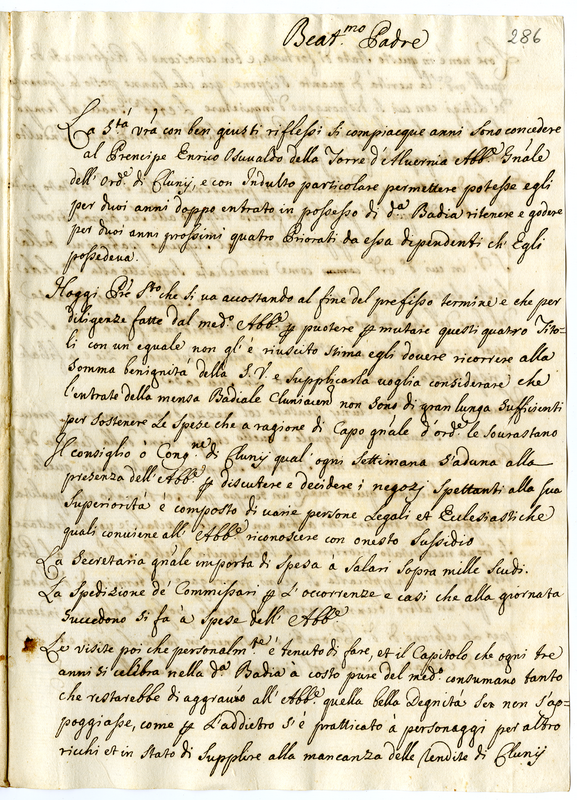 Beat.mo Padre
286
La S.tà V'rà con ben giusti riflessi si compiacque anni sono concedere
al Prencipe Enrico Osuualdo della Torre d'Aluernia Abb.e G'nale
dell'Ord.e di Cluny, e con Indulto particolare permettere potesse egli
per duoi anni doppo entrato in possesso di d.a Badia ritenere e godere
per duoi anni prossimi quatro Priorati da essa dependenti ch' Egli
possedeua.
Hoggi P're S.to che si ua accostando al fine del prefisso termine e che per
diligenze fatte dal med.o Abb.e p puotere p mutare questi quatro Tito=
li con un equale non gl'è riuscito stima egli douere ricorrere alla
somma benignità della S.V. e supplicarla uoglia considerare che
l'entrate della mensa Badiale Cluniacen non sono di gran lunga sufficienti
per sostenere le spese che a ragione di Capo gn'ale d'ord.e le sourastano
Il consiglio ò Cong.ne di Cluny qual'ogni settimana s'aduna alla
presenza dell'Abb.e p discutere e decidere i negozj spettanti alla sua
Superiorità è composto di uarie persone Legali et Ecclesiastiche
quali conuiene all'Abb.e riconoscere con onesto sussidio
La Secretaria gn'ale importa di spesa à salari sopra mille scudi.
La spedizione de' Commissari p l'occorrenze e casi che alla giornata
succedono si fà à spese dell'Abb.e
Le visite poi che personalm.te è tenuto di fare, et il Capitolo che ogni tre
anni si celibra nella d.a Badia à costo pure del med.o consumano tanto
che restarebbe di aggrauio all'Abb.e quella bella Degnità se non s'ap=
poggiasse, come p l'addietro s'è pratticato à personaggi per altro
ricchi et in stato di supplire alla mancanza delle rendite di Cluny